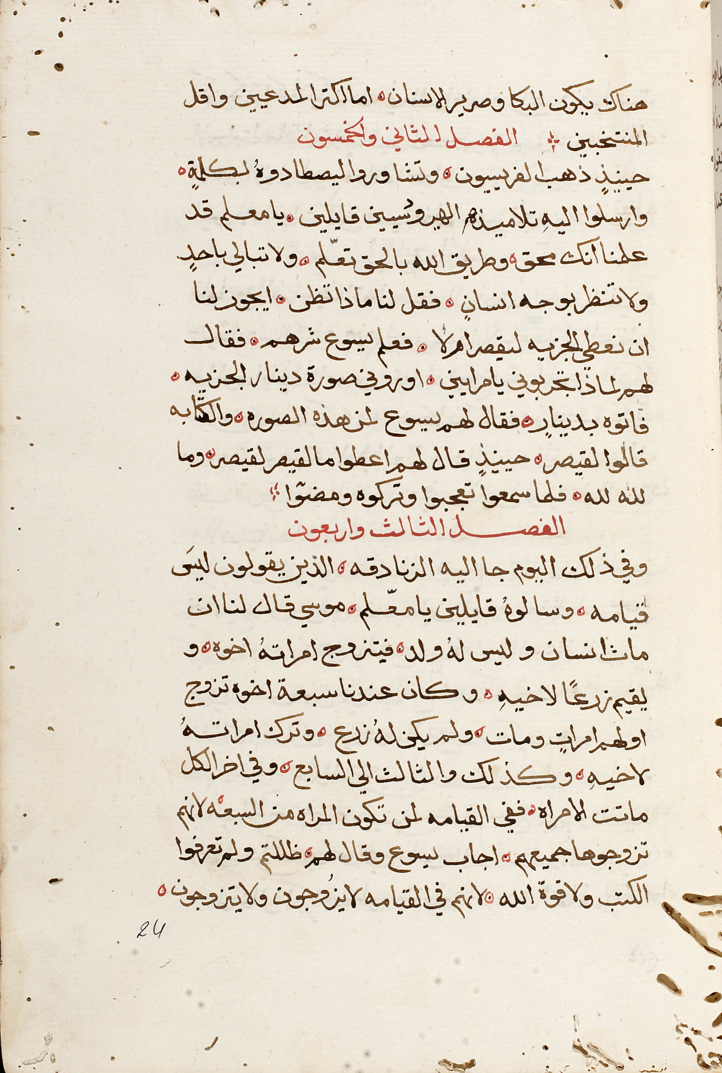 هناك يكون البكا وصرير الاسنان ۞ اما اكثر المدعيين واقل
المنتخبين ⁘ الفصل الثاني والخمسون
حينيذٍ ذهب الفريسيون ۞ وتشاوروا ليصطادوهُ بكلمةٍ ۞
وارسلوا اليهِ تلاميذهم الهيرودُسيين قايلين ۞ يا معلم قد
علمنا انك محق ۞ وطريق الله بالحق تعّلم ۞ ولا تبالي باحدٍ
ولا تنظر بوجه انسانٍ ۞ فقل لنا ماذا تظن ۞ ايجوز لنا
ان نعطي الجزيه لقيصر ام لا ۞ فعلم يسوع شرهم ۞ فقال
لهم لماذا تجربوني يا مرايين ۞ اوروني صورة دينار الجزيه ۞
فاتوه بدينارٍ ۞ فقال لهم يسوع لمن هذه الصوره ۞ والكتابه
قالوا لقيصر ۞ حينيذٍ قال لهم اعطوا ما لقيصر لقيصر ۞ وما
لله لله ۞ فلما سمعوا تعجبوا وتركوه ومضوا ⁘
الفصل الثالث واربعون
وفي ذلك اليوم جا اليه الزنادقه ۞ الذين يقولون ليسَ
قيامه ۞ وسالوهُ قايلين يا معّلم ۞ موسي قال لنا ان
مات انسان وليس لهُ ولد ۞ فيتزوج امراتهُ اخوه ۞ و
يقيم زرعًا لاخيهِ ۞ وكان عندنا سبعة اخوه تزوج
اولهم امراتٍ ومات ۞ ولم يكن لهُ زرع ۞ وترك امراتهُ
لاخيهِ ۞ وكذلك والثالث الي السابع ۞ وفي اخر الكل
ماتت الامراه ۞ ففي القيامه لمن تكون المراه من السبعه ۞ لانهم
تزوجوها جميعهم ۞ اجاب يسوع وقال لهم ۞ ظللتم ولم تعرفوا
الكتب ولا قوة الله ۞ لانهم في القيامه لا يزُوجون ولا يتزوجون ۞
24